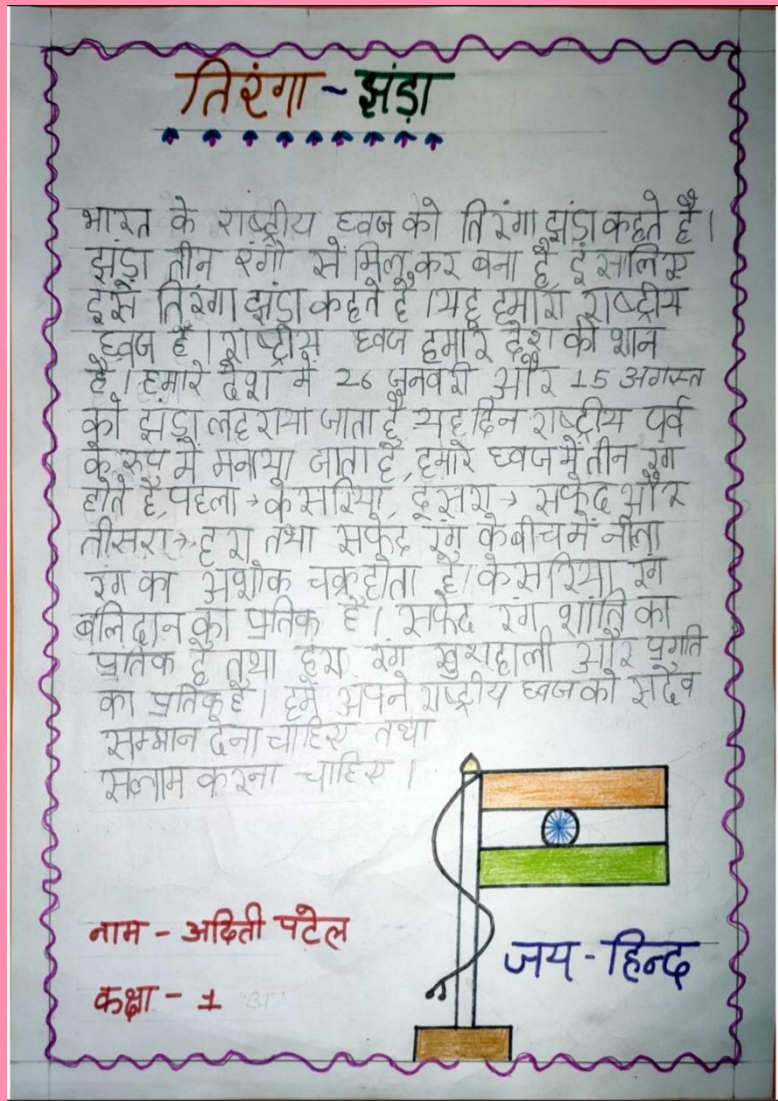 तिरंगा - झंडा
भारत के राष्ट्रीय घ्वज को तिरंगा झंडा कहते है ।
झंडा तीन रंगो से मिल कर बना है, इसलिए
इसे तिरंगा झंडा कहते है । यह हमारा राष्ट्रीय
घ्वज है । राष्ट्रीय घ्वज हमारे देश की शान
है । हमारे देश में 26 जनवरी और 15 अगस्त
को झंडा लहराया जाता है, यह दिन राष्ट्रीय पर्व
के रुप में मनाया जाता है, हमारे घ्वज में तीन रंग
होते है, पहला → केसरिया, दूसरा → सफेद और
तीसरा → हरा तथा सफेद रंग के बीच में नीला
रंग का अशोक चक्र होता है । केसरिया रंग
बलिदान का प्रतिक है । सफेद रंग शांति का
प्रतिक है तथा हरा रंग खुशहाली और प्रगति
का प्रतिक है । हमें अपने राष्ट्रीय घ्वज को सदैव
सम्मान देना चाहिए तथा
सलाम करना चाहिए ।
नाम - अदिती पटेल
कक्षा - 1 'अ'
जय - हिन्द